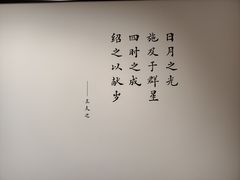 日月之光
施及于群星
四时之成
绍之以献岁
——王夫之